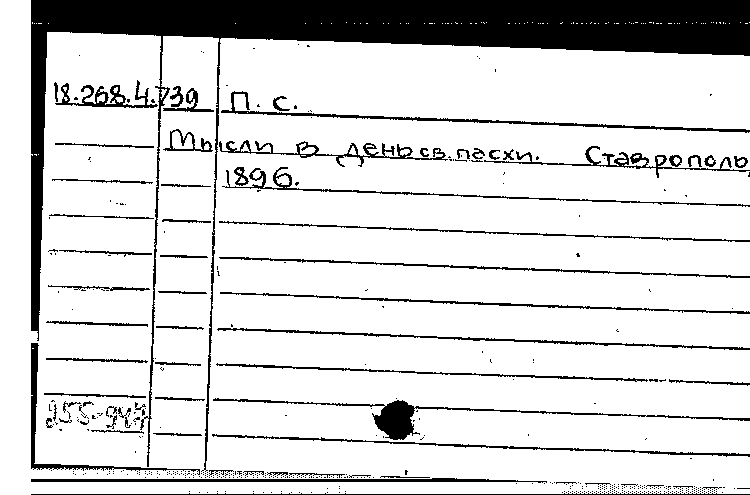 18.268.4.739 П. С.
Мысли в день св. пасхи. Ставрополь,
1896.
255-947